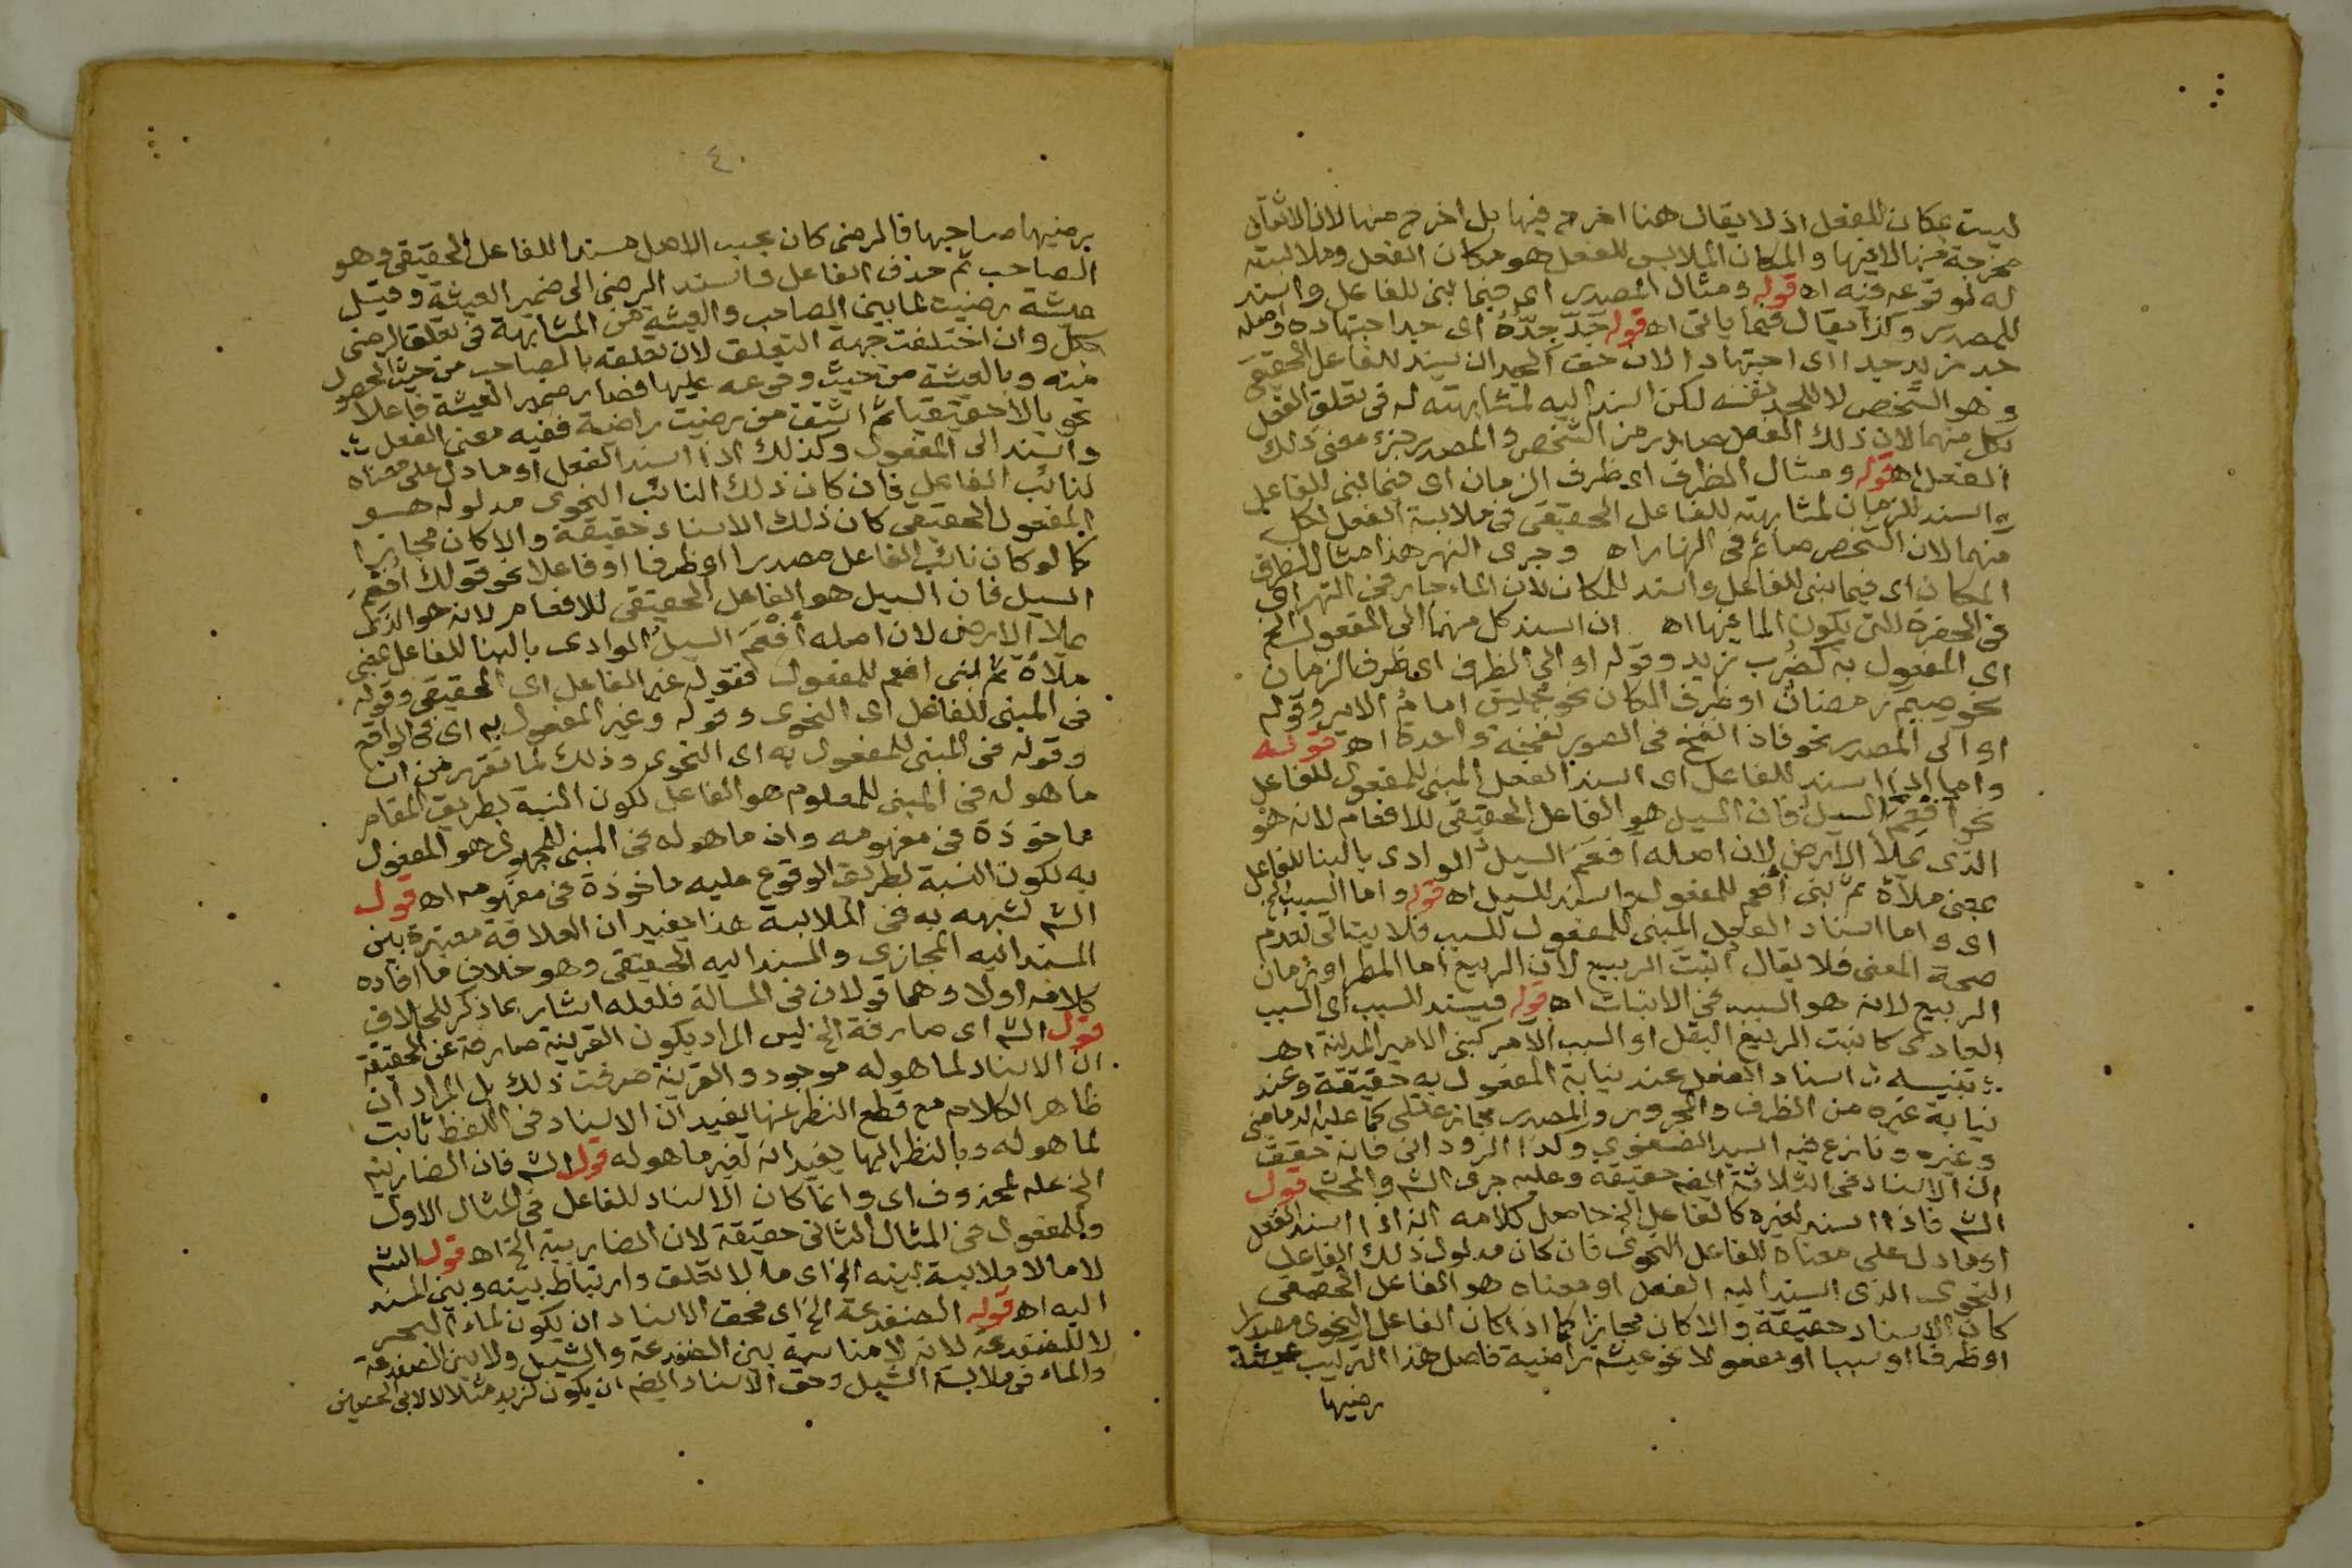 ليست بمكان للفعل اذ لا يقال هنا اخرج فيها بل اخرج منها لان الاثقال
مخرجة منها لا فيها والمكان الملابس للفعل هو مكان الفعل وملابسته
له لوقوعه فيه اه قوله ومثال المصدر اى فيما بنى للفاعل واسند
للمصدر وكذا يقال فيما ياتى اه قوله جَدَّ جِدُّهُ اى جد اجتهاده اصله
جد زيد جدا اى اجتهادا لان حق الجد ان يسند للفاعل الحقيقى
وهو الشخص لا للجد نفسه لكن اسند اليه لمشابهته له فى تعلق الفعل
بكل منهما لان ذلك الفعل صادر من الشخص والمصدر جزء معنى ذلك
الفعل اه قوله ومثال الظرف اى ظرف الزمان اى فيما بنى للفاعل
واسند للزمان لمشابهته للفاعل الحقيقى فى ملابسة الفعل لكل
منهما لان الشخص صائم فى النهار اه وجرى النهر هذا مثال لظرف
المكان اى فيما بنى للفاعل واسند للمكان لان الماء جار فى النهر اى
فى الحفرة التى يكون الما فيها اه ان اسند كل منهما الى المفعول الخ
اى المفعول به كضُرب زيد وقوله او الى الظرف اى ظرف الزمان
نحو صيم رمضان او ظرف المكان نحو جُلِسَ امامُ الامير وقوله
او الى المصدر نحو فاذا نفخ فى الصور نفخة واحدة اه قوله
واما اذا اسند للفاعل اى اسند الفعل المبنى للمفعول للفاعل
نحو أُفْعِمَ السيل فان السيل هو الفاعل الحقيقى للافعام لانه هو
الذى يملأ الارض لان اصله أَفْعَمَ السيلُ الوادى بالبنا للفاعل
بمعنى ملأه ثم بنى أفعم للمفعول واسند للسيل اه قوله واما السبب الخ
اى واما اسناد الفعل المبنى للمفعول للسبب فلا يتاتى لعدم
صحة المعنى فلا يقال أُنبت الربيع لان الربيع اما المطر او زمان
الربيع لانه هو السبب فى الانبات اه قوله فيسند للسبب اى السبب
العادى كانبت الربيع البقل او السبب الآمر كبنى الامير المدينة اهـ
تنبيه اسناد الفعل عند نيابة المفعول به حقيقة وعند
نيابة غيره من الظرف والمجرور والمصدر مجاز عقلى كما عليه الدمامينى
وغيره ونازع فيه السيد الصفوي وكذا الرودانى فانه حقق
ان الاسناد فى الثلاثة ايضا حقيقة وعليه جرى الش والمحش قول
الش فاذا اسند لغيره كالفاعل الخ حاصل كلامه انه اذا اسند الفعل
او ما دل على معناه للفاعل النحوى فان كان مدلول ذلك الفاعل
النحوى الذى اسند اليه الفعل او معناه هو الفاعل الحقيقى
كان الاسناد حقيقة والا كان مجازا كما اذا كان الفاعل النحوى مصدرا
او ظرفا او سببا او مفعولا نحو عيشة راضية فاصل هذا التركيب عيشة
رضيها
٤٠
رضيها صاحبها فالرضى كان بحسب الاصل مسندا للفاعل الحقيقى وهو
الصاحب ثم حذف الفاعل واسند الرضى الى ضمير العيشة وقيل
عيشة رضيت لما بين الصاحب والعيشة من المشابهة فى تعلق الرضى
بكل وان اختلفت جهة التعلق لان تعلقه بالصاحب من حيث الحصول
منه وبالعيشة من حيث وقوعه عليها فصار ضمير العيشة فاعلا
نحويا لا حقيقيا ثم اشتق من رضيت راضية ففيه معنى الفعل
واسند الى المفعول وكذلك اذا اسند الفعل او ما دل على معناه
لنائب الفاعل فان كان ذلك النائب النحوى مدلوله هو
المفعول الحقيقى كان ذلك الاسناد حقيقة والا كان مجازا
كما لو كان نائب الفاعل مصدرا او ظرفا او فاعلا نحو قولك أُفْعِمَ
السيل فان السيل هو الفاعل الحقيقى للافعام لانه هو الذى
يملأ الارض لان اصله أَفْعَمَ السيلُ الوادى بالبنا للفاعل بمعنى
ملأه ثم بنى افعم للمفعول فقوله غير الفاعل اى الحقيقى وقوله
فى المبنى للفاعل اى النحوى وقوله وغير المفعول به اى فى الواقع
وقوله فى المبنى للمفعول به اى النحوى وذلك لما تقرر من ان
ما هو له فى المبنى للمعلوم هو الفاعل لكون النسبة بطريق القيام
ماخوذة فى مفهومه وان ما هو له فى المبنى للمجهول هو المفعول
به لكون النسبة بطريق الوقوع عليه ماخوذة فى مفهومه اه قول
الش لشبهه به فى الملابسة هذا يفيد ان العلاقة معتبرة بين
المسند اليه المجازى والمسند اليه الحقيقى وهو خلاف ما افاده
كلامه اولا وهما قولان فى المسالة فلعله اشار بما ذكر للخلاف
قول الش اى صارفة الخ ليس المراد بكون القرينة صارفة عن الحقيقة
ان الاسناد لما هو له موجود والقرينة صرفت ذلك بل المراد ان
ظاهر الكلام مع قطع النظر عنها يفيد ان الاسناد فى اللفظ ثابت
لما هو له وبالنظر اليها يفيد انه لغير ما هو له قول الش فان الضاربية
الخ علة لمحذوف اى وانما كان الاسناد للفاعل فى المثال الاول
وللمفعول فى المثال الثانى حقيقة لان الضاربية الخ اه قول الش
لا ما لا ملابسة بينه الخ اى ما لا تعلق وارتباط بينه وبين المسند
اليه اه قوله الضفدعة الخ اى فحق الاسناد ان يكون لماء البحر
لا للضفدعة لانه لا مناسبة بين الضفدعة والشيل ولا بين الضفدعة
والماء فى ملابسة الشيل وحق الاسناد ايضا ان يكون لزيد مثلا لا لابى الحصين